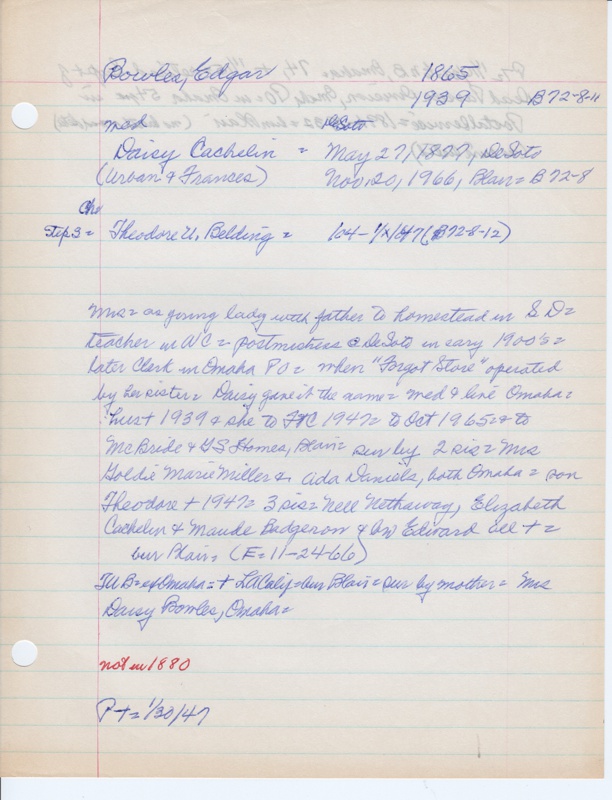 Bowles, Edgar 1865
1939 B72-8-11
med DeSoto
Daisy Cachelin = May 27, 1877, DeSoto
(Urban & Frances) Nov. 20, 1966, Blair = B72-8
Ch
Step S = Theodore U. Belding = 104-1/x/47 (B72-8-12)
Mrs = as young lady with father to homestead in S D =
teacher in WC = postmistress @ DeSoto in early 1900's =
later Clerk in Omaha PO = when "Forgot Store" operated
by her sister = Daisy gave it the name = med & live Omaha =
hus + 1939 & she to FtC 1947 = to Oct 1965 = & to
McBride & GS Homes, Blair = sur by 2 sis = Mrs
Goldie Marie Miller & Aida Daniels, both Omaha = son
Theodore + 1947 = 3 sis = Nell Nethaway, Elizabeth
Cachelin & Maude Badgerow & bro Edward all + =
bur Blair = (E = 11-24-66)
TUB = of Omaha = + LA Calif = bur Blair = sur by mother = Mrs
Daisy Bowles, Omaha =
not in 1880
P + = 1/30/47